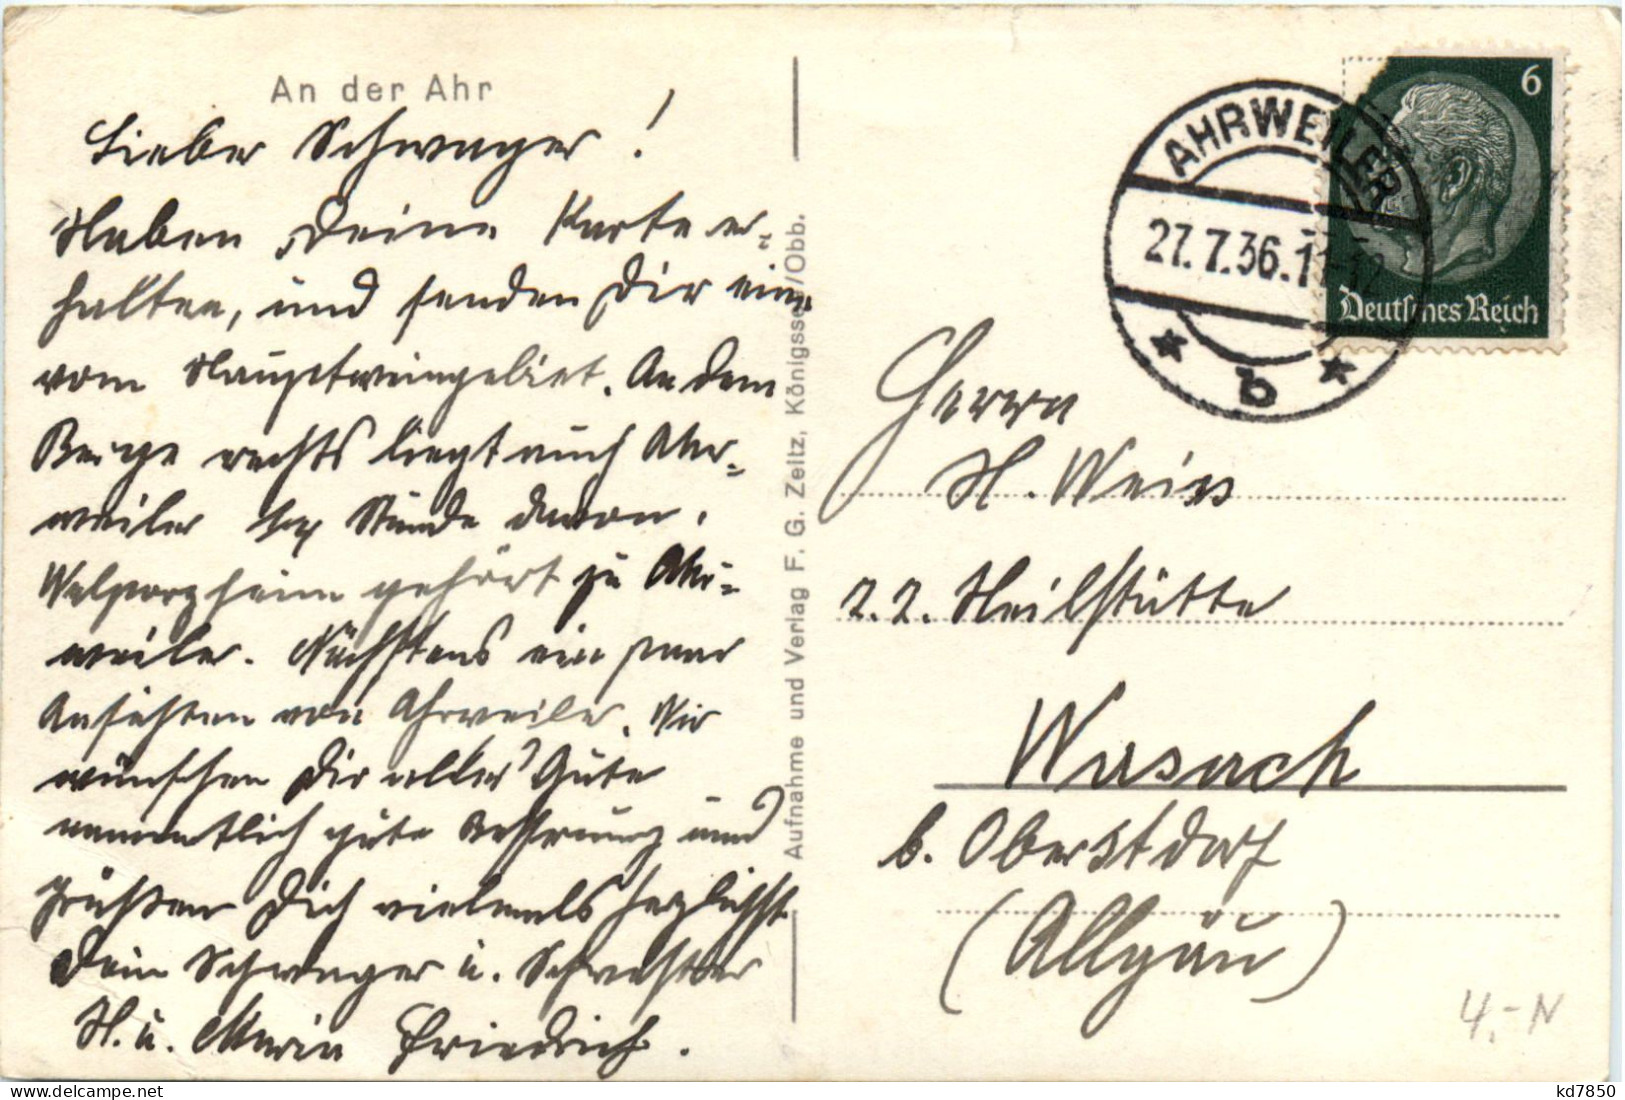 An der Ahr
Lieber Schwager!
Haben Deine Karte er-
halten, und senden Dir eine
vom Hauptweingebiet. An dem
Berge rechts liegt auch Ahr-
weiler Stunde davon.
Walporzheim gehört zu Ahr-
weiler. Nächstens ein paar
Ansichten von Ahrweiler. Wir
wünschen Dir alles Gute
namentlich gute Besserung und
grüßen Dich vielmals herzlichst
Dein Schwager u. Schwester
H. u. Maria Friedrich.
Aufnahme und Verlag F. G. Zeitz, Königssee/Obb.
AHRWEILER
27.7.36.11-12
b
6
Deutsches Reich
Herrn
H. Weiss
z. Z. Heilstätte
Wasach
b. Oberstdorf
(Allgäu)
4,- N
kd7850